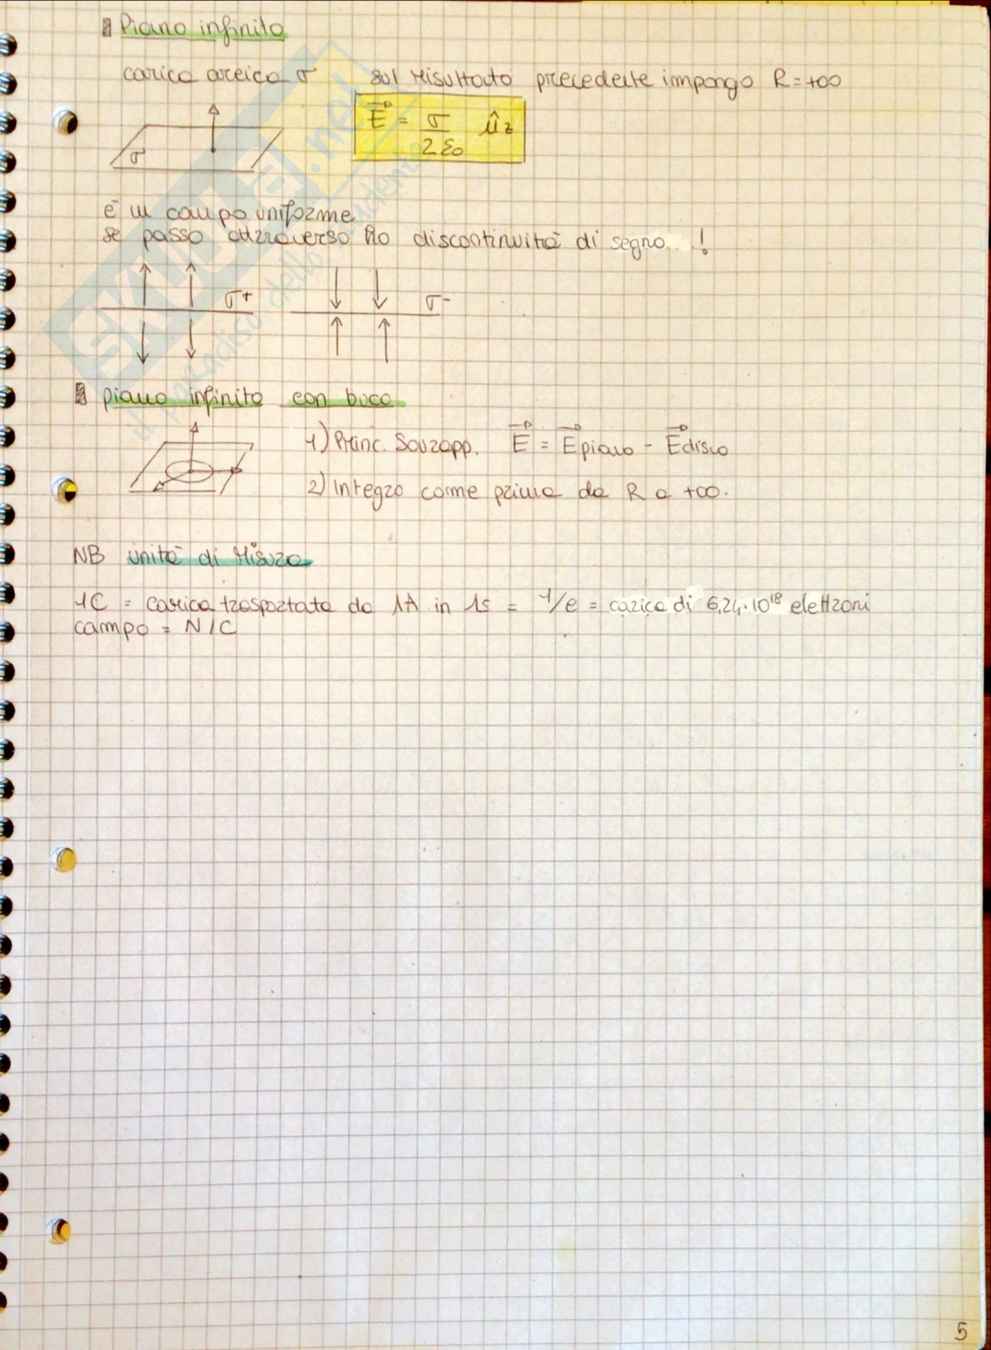 Piano infinito
carica areica σ sul risultato precedente impongo R=+∞
E = σ/2ε0 ûz
σ
è un campo uniforme
se passo attraverso ho discontinuità di segno...!
σ+ σ-
piano infinito con buco
1) Princ. Sovrapp. E = Epiano - Edisco
2) integro come prima da R a +∞.
NB unità di misura
1C = carica trasportata da 1A in 1s = 1/e = carica di 6,24·10¹⁸ elettroni
campo = N/C
5
SKUOLA.net
il paradiso dello studente